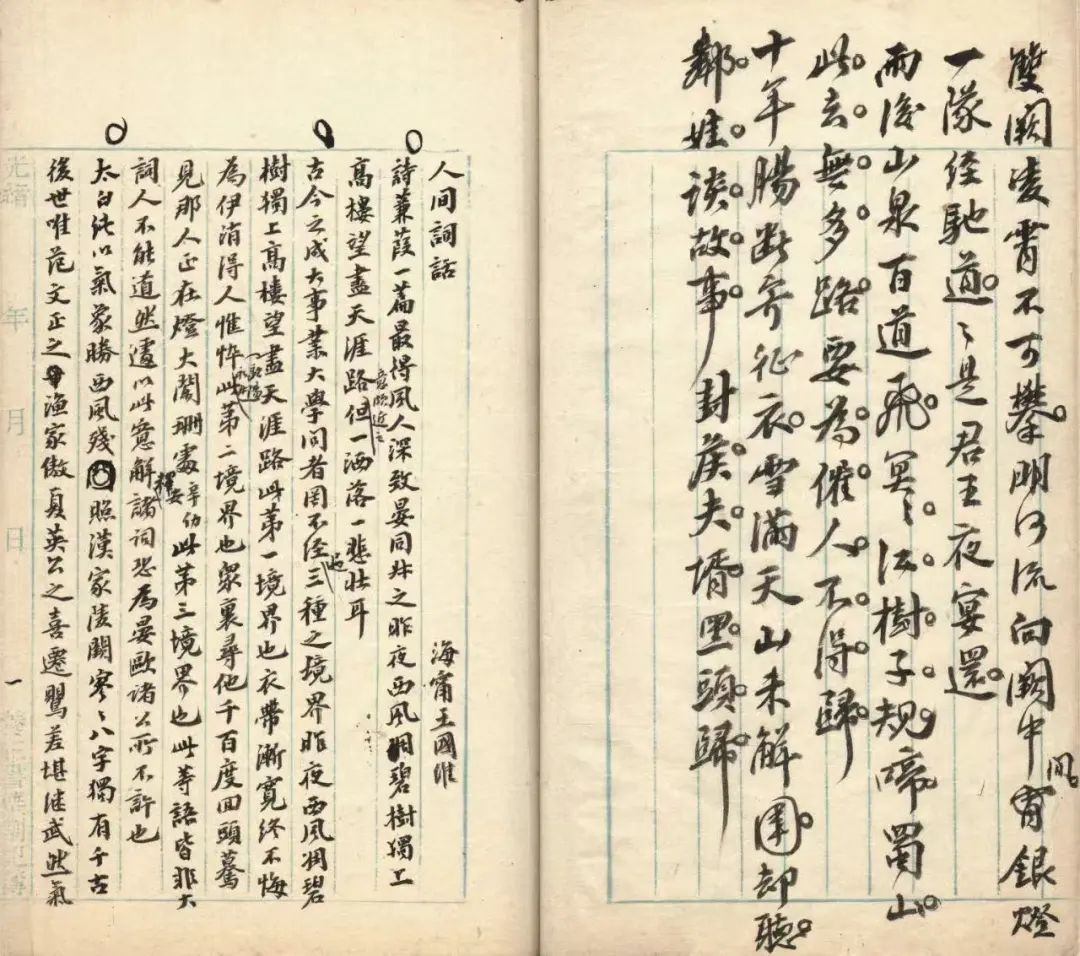 雙闕凌霄不可攀明河流向闕中間宵銀燈
一隊經馳道道是君王夜宴還
雨後山泉百道飛冥冥江樹子規啼蜀山
此去無多路要為催人不得歸
十年腸斷寄征衣雪滿天山未解圍却聽
鄰娃談故事封侯夫壻黑頭歸
人间詞話
海甯王國維
詩蒹葭一篇最得風人深致晏同叔之昨夜西風凋碧樹獨上
高樓望盡天涯路意頗近之但一洒落一悲壯耳
古今之成大事業大學問者罔不經過三種之境界昨夜西風凋碧
樹獨上高樓望盡天涯路此第一境界也衣帶漸寬終不悔
為伊消得人憔悴此第二境界也眾裏尋他千百度回頭驀
見那人正在燈火闌珊處辛幼安此第三境界也此等語皆非大
詞人不能道然遽以此意解諸詞恐為晏歐諸公所不許也
太白純以氣象勝西風殘照漢家陵闕寥寥八字獨有千古
後世唯范文正之漁家傲夏英公之喜遷鶯差堪继武然氣
光緒 年 月 日
一